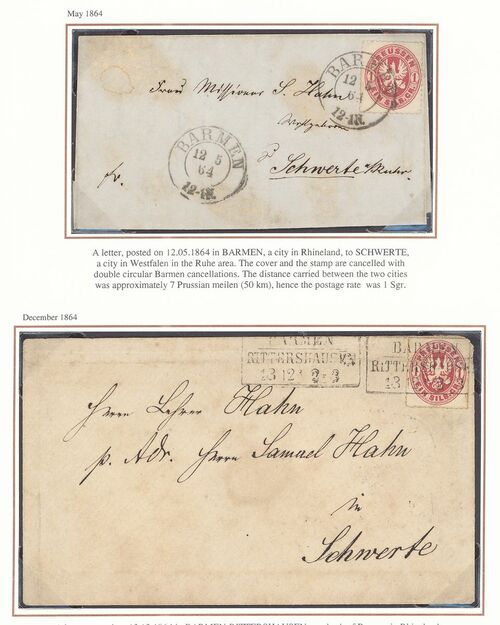 May 1864
BARMEN
12 5
64
12-1N.
PREUSSEN
1 1
EIN SILBGR.
Frau Missionar S. Hahn
Wohlgeboren
BARMEN
12 5
64
12-1N.
fr.
Schwerte a/Ruhr.
A letter, posted on 12.05.1864 in BARMEN, a city in Rhineland, to SCHWERTE,
a city in Westfalen in the Ruhe area. The cover and the stamp are cancelled with
double circular Barmen cancellations. The distance carried between the two cities
was approximately 7 Prussian meilen (50 km), hence the postage rate was 1 Sgr.
December 1864
BARMEN
RITTERSHAUSEN
13 12 2-3
BAR
RITTERSH
13
PREUSSEN
EIN SILB.GR.
Herrn Lehrer Hahn
p. Adr. Herrn Samuel Hahn
in
Schwerte